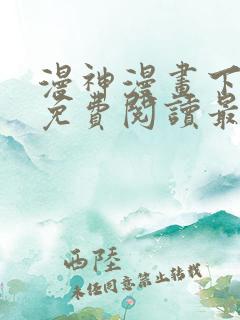 漫神漫畫下
免費閱讀最
西陸
未经同意禁止转载